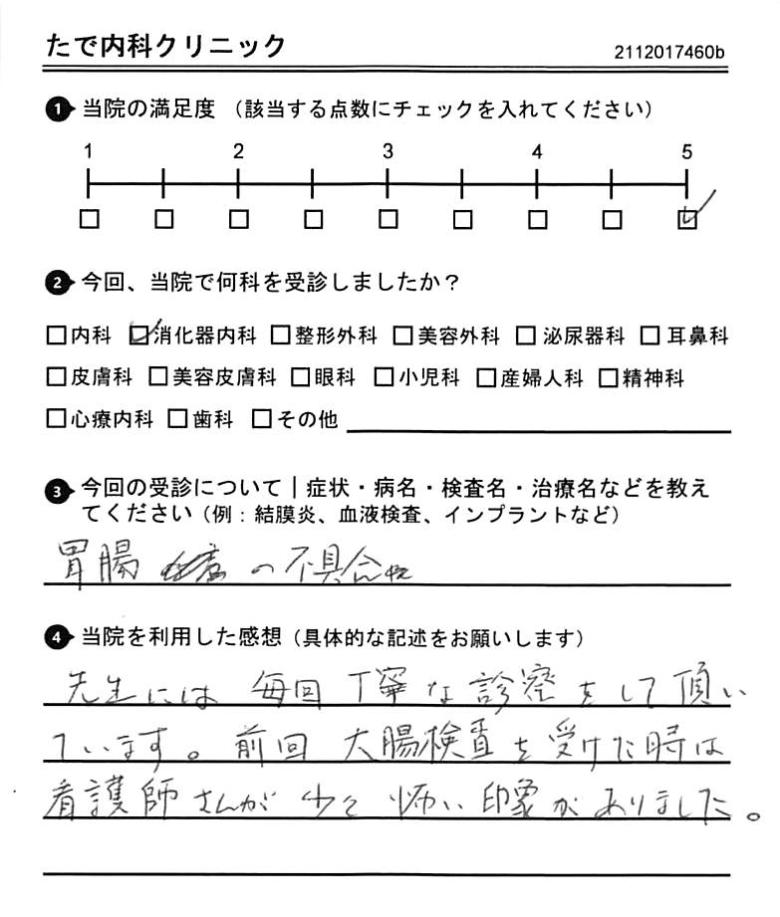 たで内科クリニック 2112017460b
1 当院の満足度 (該当する点数にチェックを入れてください)
1 2 3 4 5
2 今回、当院で何科を受診しましたか?
内科 消化器内科 整形外科 美容外科 泌尿器科 耳鼻科
皮膚科 美容皮膚科 眼科 小児科 産婦人科 精神科
心療内科 歯科 その他
3 今回の受診について|症状・病名・検査名・治療名などを教え
てください(例:結膜炎、血液検査、インプラントなど)
胃腸 の不具合
4 当院を利用した感想(具体的な記述をお願いします)
先生には 毎回 丁寧な診察をして頂い
ています。前回 大腸検査を受けた時は
看護師さんが 少々怖い印象がありました。